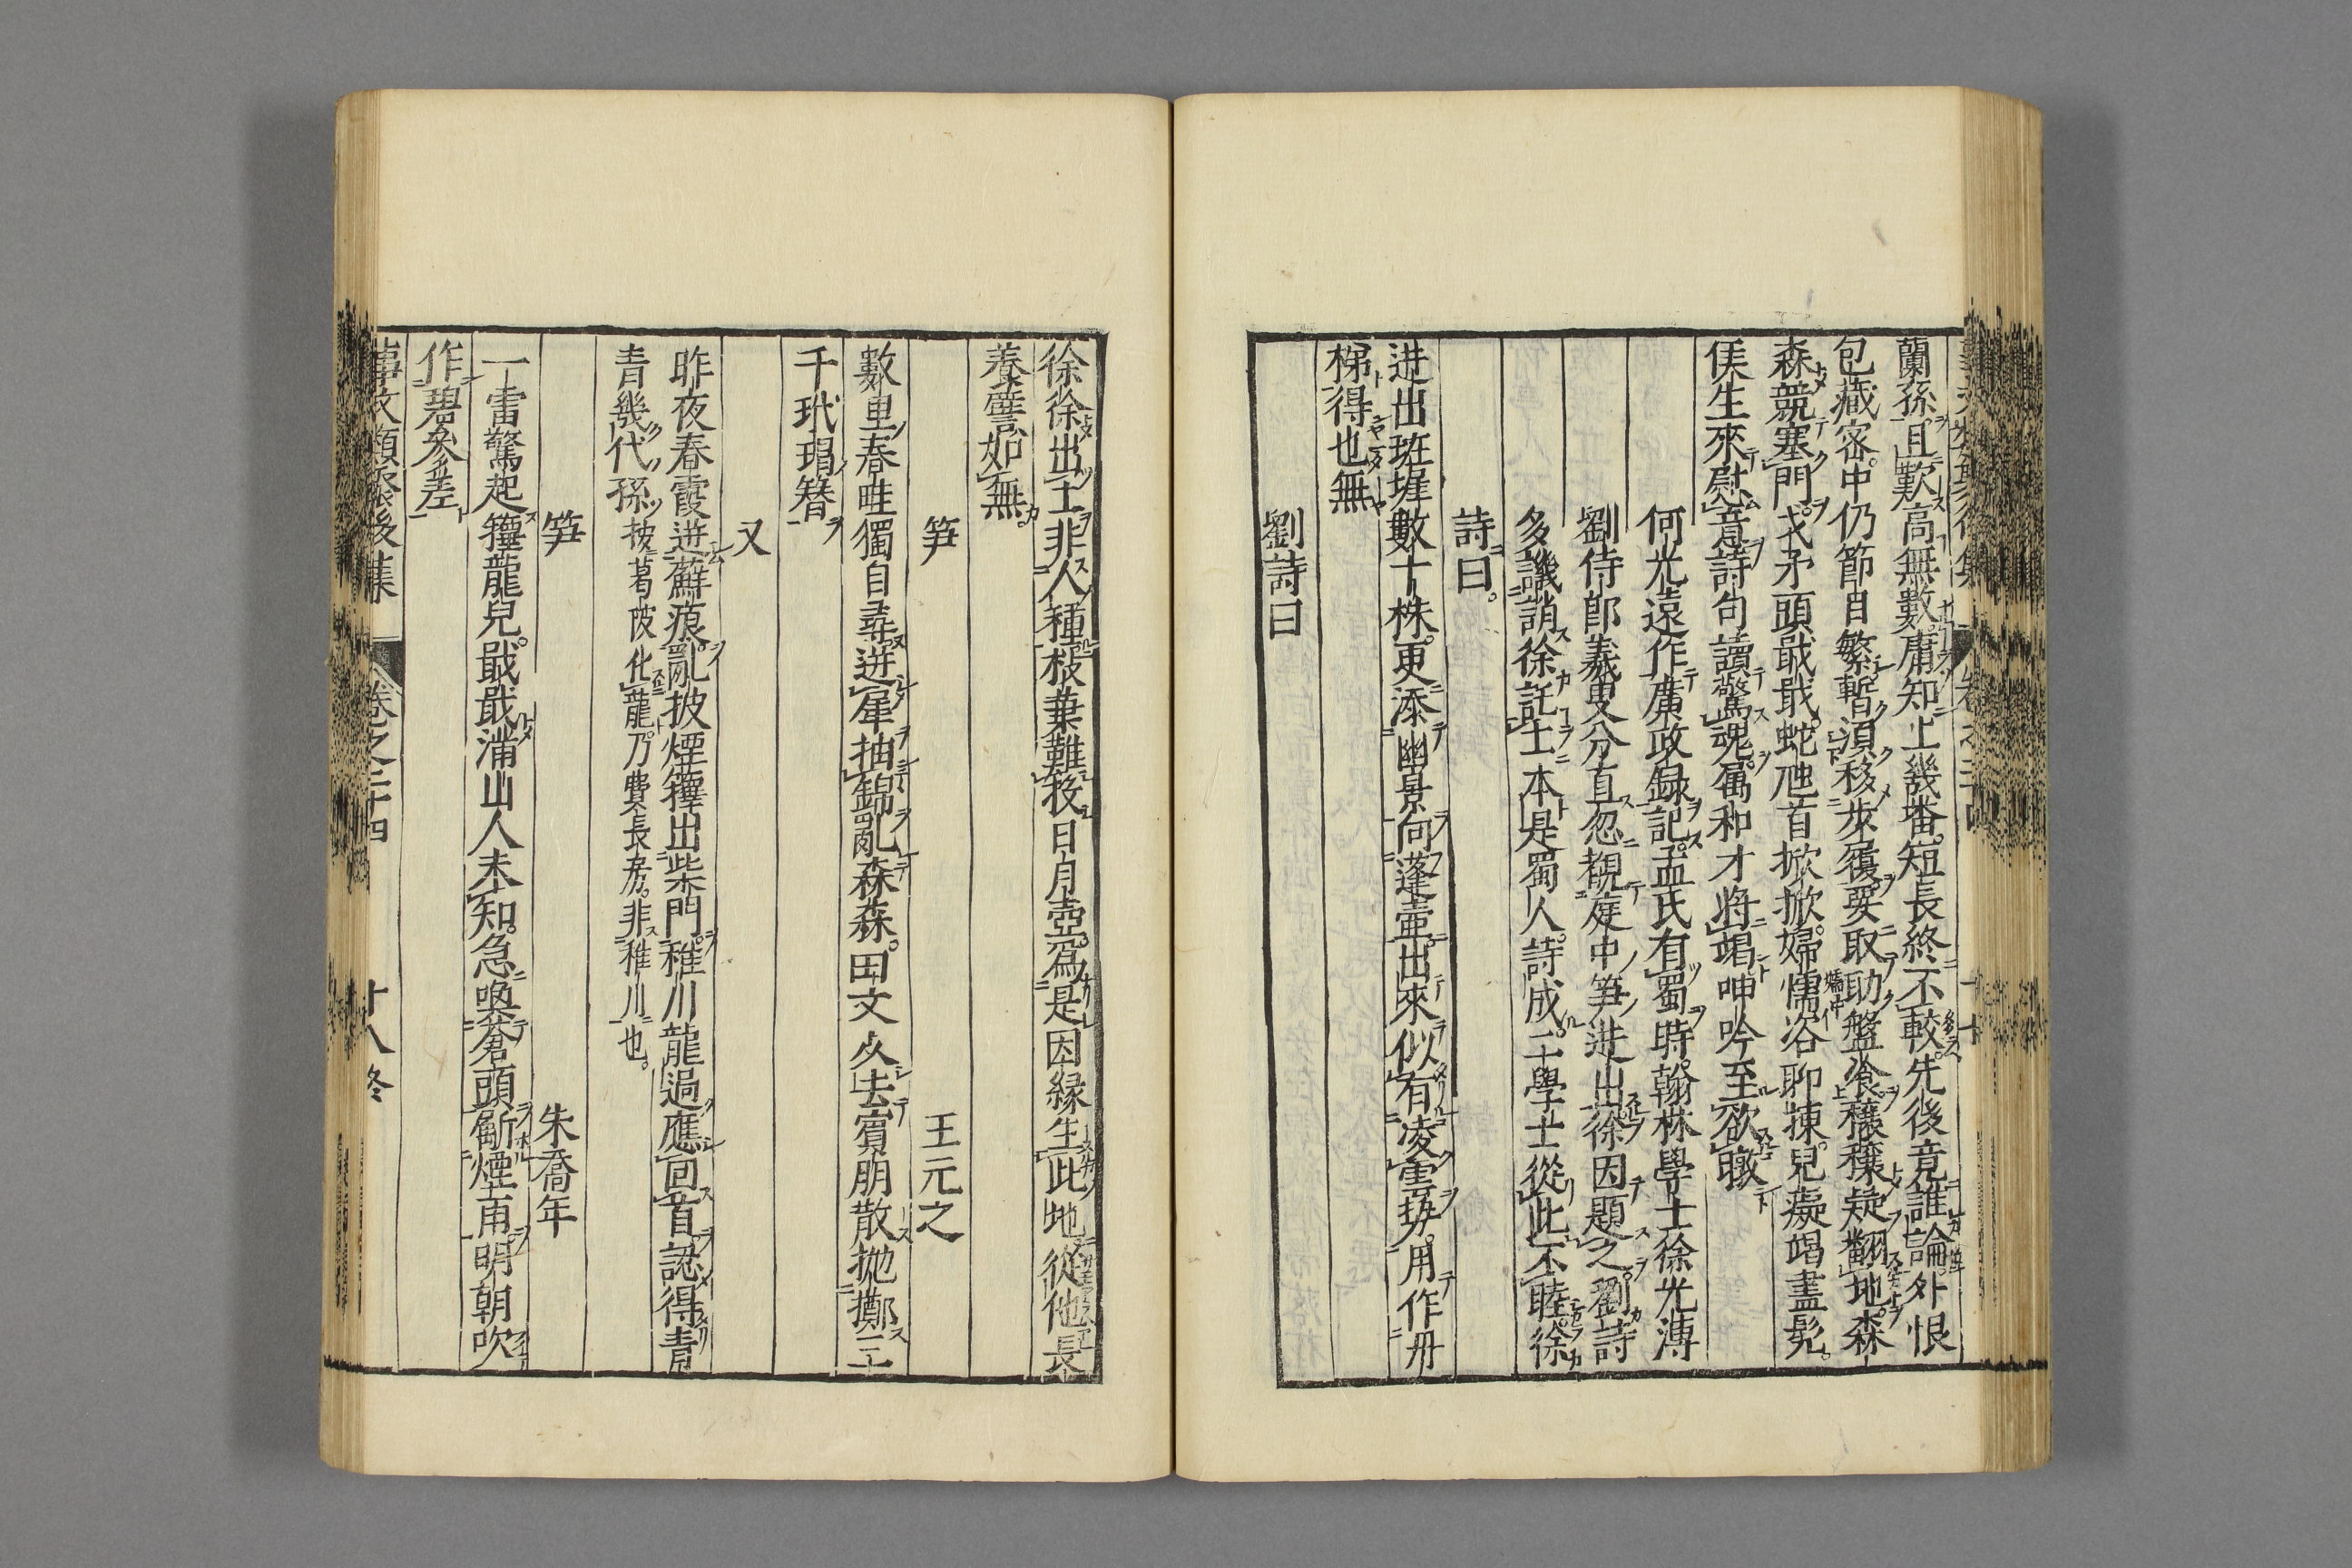 蘭孫且歎高無數庸知上幾番短長終不較先後竟誰論外恨
包藏密中仍節目繁暫須移步履要取助盤飡穰穰疑翻地森
森競塞門戈矛頭戢戢蛇虺首掀掀婦懦咨料揀兒癡竭盡髡
侯生來慰意詩句讀驚魂屬和才將竭呻吟至欲暾
何光遠作廣政錄記孟氏有蜀時翰林學士徐光溥
劉侍郎羲叟分直忽覩庭中笋迸出徐因題之劉詩
多譏誚徐託土本是蜀人詩成二學士從此不睦徐
詩曰
迸出班墀數十株更添幽景向蓬壺出來似有凌雲勢用作丹
梯得也無
劉詩曰
徐徐出土非人種枝葉難投日月壺爲是因緣生此地從他長
養譬如無
笋 王元之
數里春畦獨自尋迸犀抽錦亂森森田文久去賓朋散抛擲三
千玳瑁簪
又
昨夜春霞迸蘚痕亂披煙籜出柴門稚川龍過應回首認得青
青幾代孫 投葛陂化龍乃費長房非稚川也
笋 朱喬年
一雷驚起籜龍兒戢戢滿山人未知急喚蒼頭斸煙雨明朝吹
作碧參差
事文類聚後集 卷之二十四 十八終